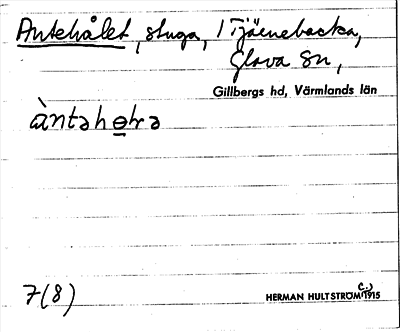 Antehålet, stuga, i Tjärnebacka,
Glava sn,
Gillbergs hd, Värmlands län
àntəhɵlrə
7(8)
HERMAN HULTSTRÖM (c.) 1915